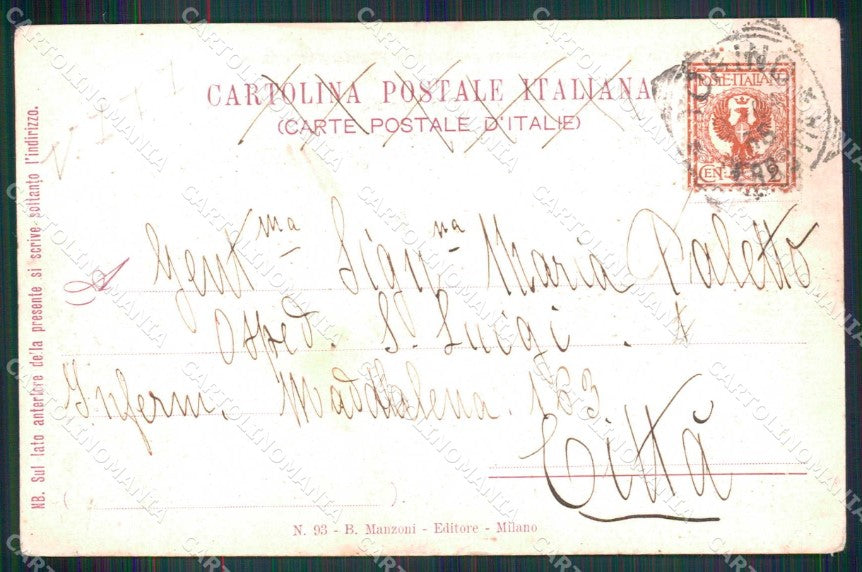 CARTOLINA POSTALE ITALIANA
(CARTE POSTALE D'ITALIE)
POSTE·ITALIANE
TORINO
NB. Sul lato anteriore de'la presente si scrive soltanto l'indirizzo.
A Gent.ma Sign.na Maria Paletto
Osped. S. Luigi.
Inferm. Maddalena 163
Città
N. 93 - B. Manzoni - Editore - Milano
CARTOLINOMANIA